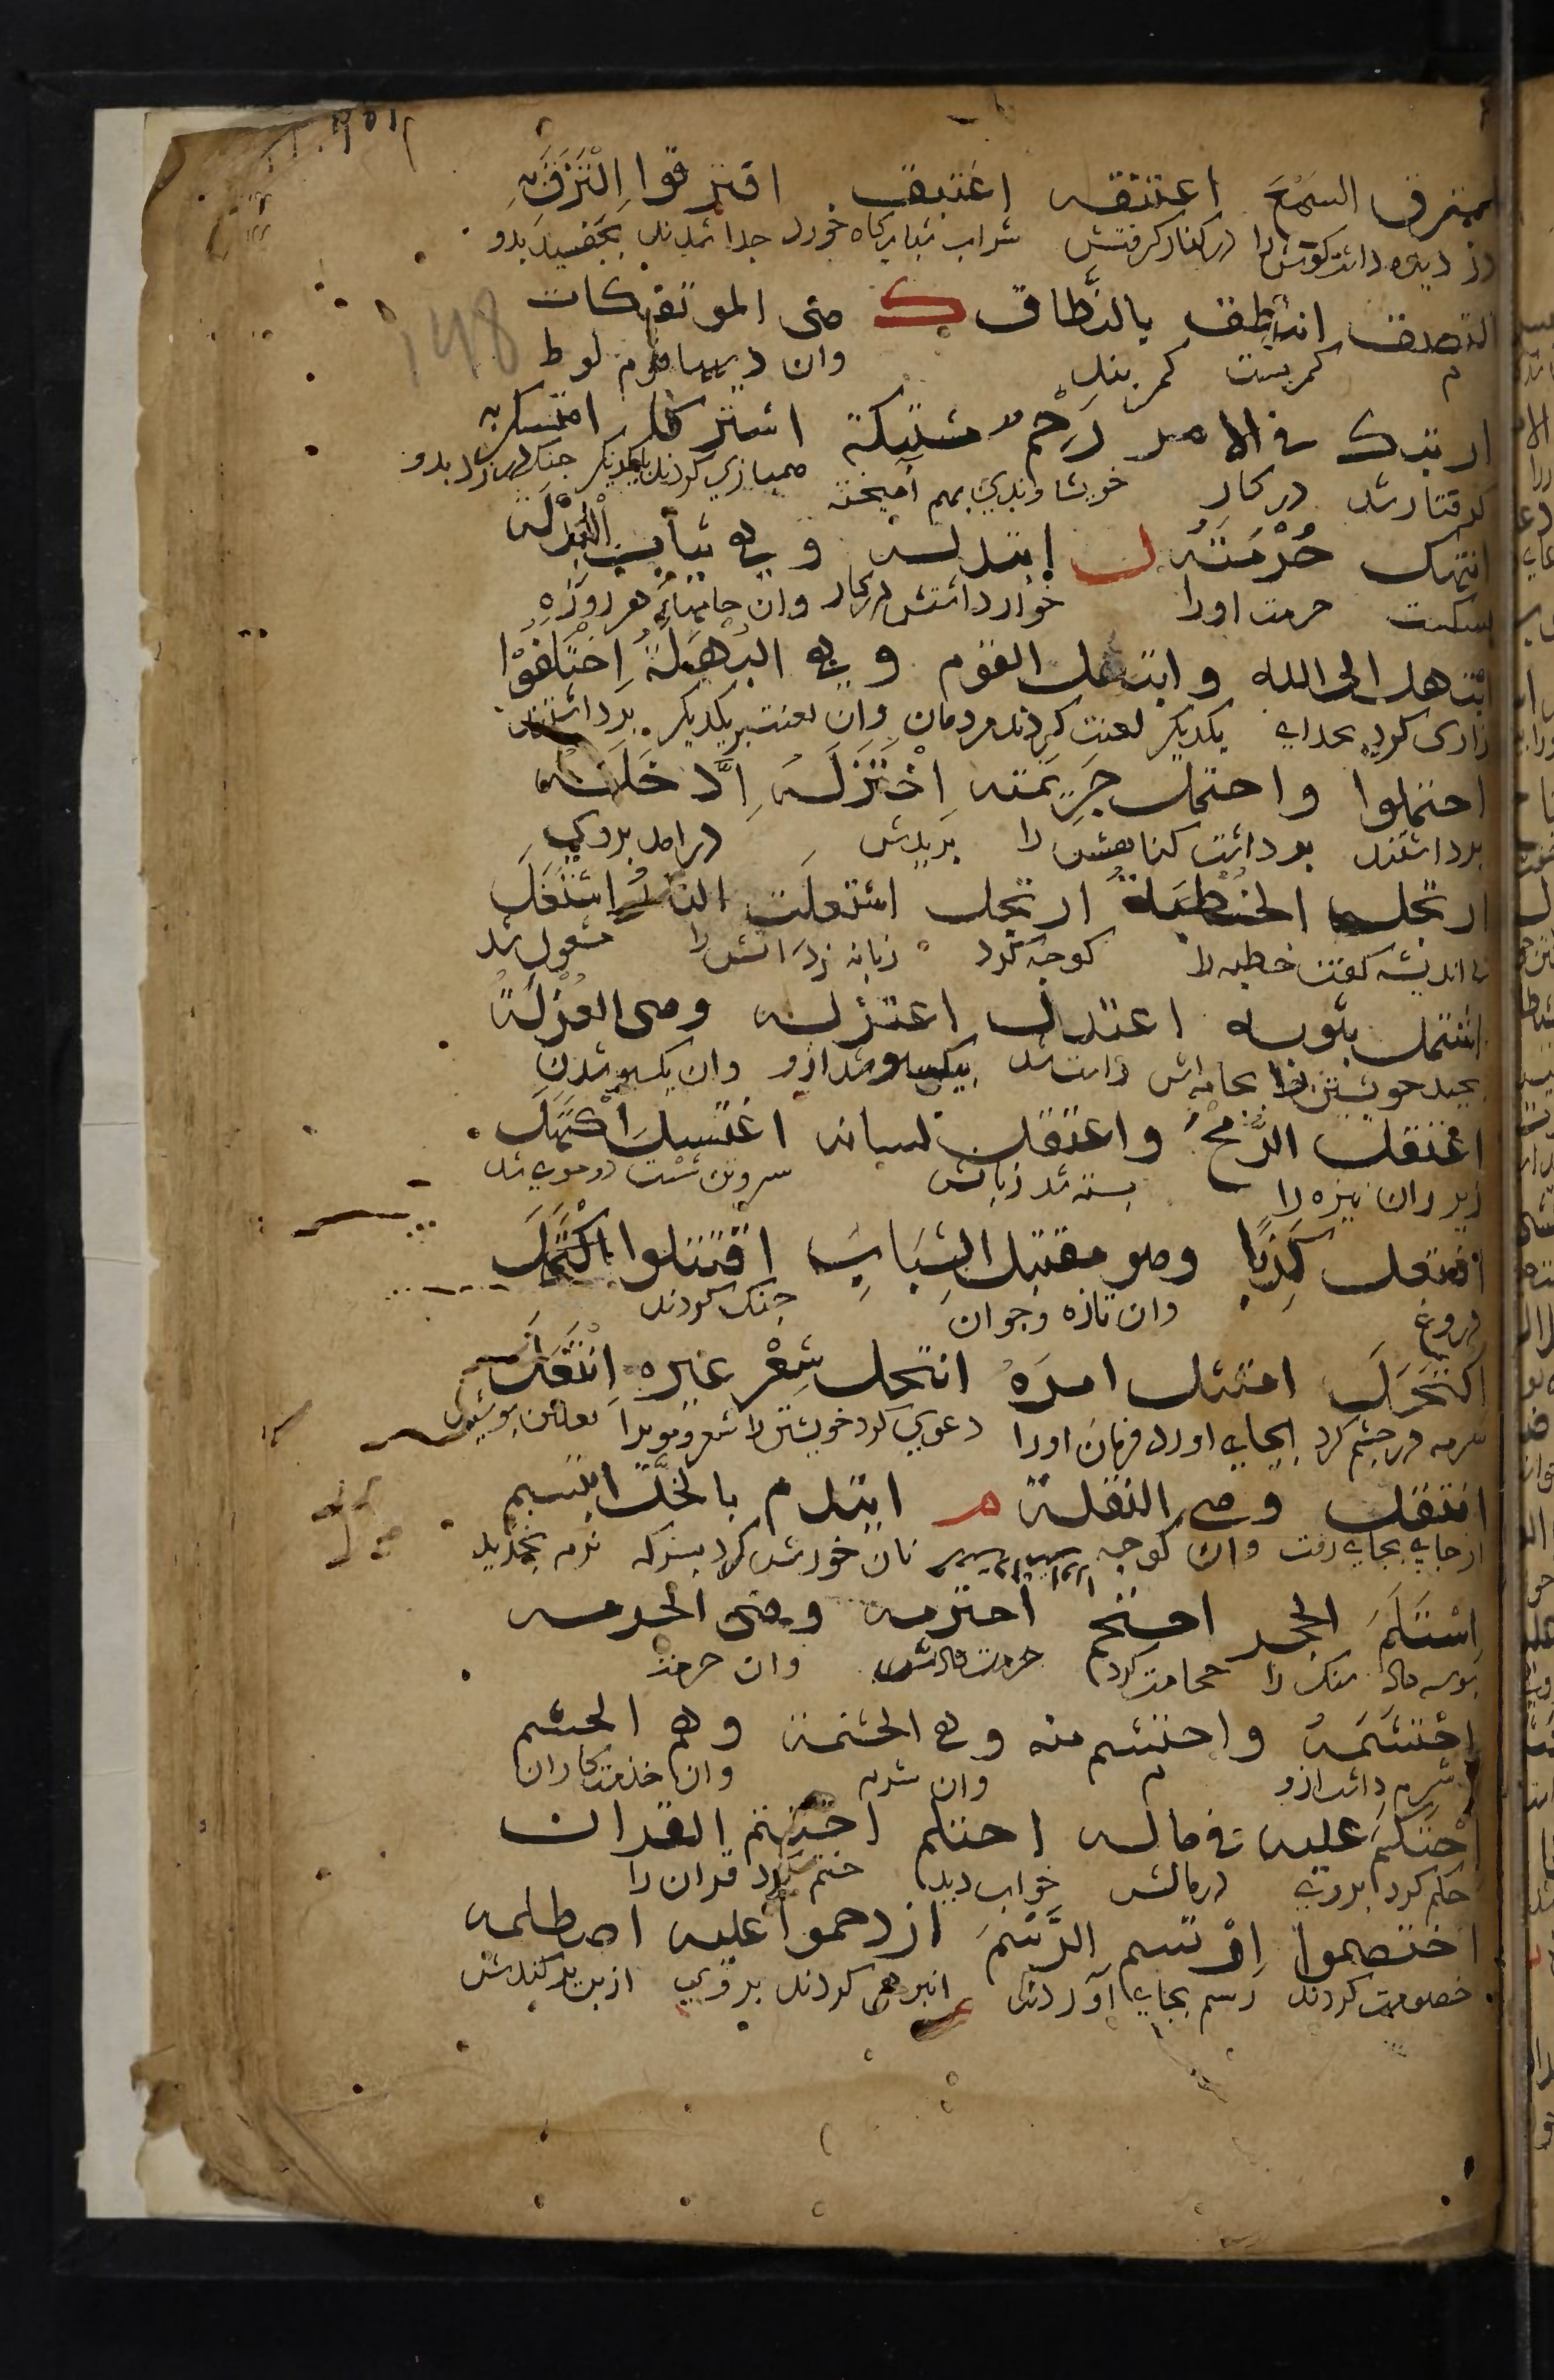 استرق السمع اعتنقه اغتبق افترقوا التزق به
دزدیده داشت کوش را در کنار کرفتش شراب شبانکاه خورد جدا شدند بجفسید بدو
التصق انتطق بالنطاق ك هی الموتفکات
م کمر بست کمر بند وان دیهها قوم لوط
148
ارتبك فی الامر رحم مشتبکة اشترکا امتسك به
کرفتار شد در کار خویشاوندی بهم آمیخته همبازی کردند بایکدیکر جنک در زد بدو
انتهك حرمته ل ابتذله وهی ثیاب البذلة
شکست حرمت اورا خوار داشتش در کار وان جامهای هر روزه
ابتهل الی الله وابتهل القوم وهی البهلة احتلفوا
زاری کرد بخدای یکدیکر لعنت کردند مردمان وان لعنت بر یکدیکر
احتملوا واحتمل جریمته اختزله ادخله
برداشتند برداشت کناهش را بریدش درامد بروی
ارتجل الخطبة ارتحل اشتعلت النار اشتغل
بی اندیشه کفت خطبه را کوچ کرد زبانه زد اتش را مشغول شد
اشتمل بثوبه اعتدل اعتزله وهی العزلة
بجید خویشتن را بجامه اش راست شد بیکسو شد ازو وان یکسو شدن
اعتقل الرمح واعتقل لسانه اغتسل اکتهل
زیر ران نیزه را بسته شد زبانش سروتن شست دوموی شد
افتعل کذبا وهو مقتبل الشباب اقتتلوا اکتمل
دروغ وان تازه وجوان جنک کردند
اکتحل امتثل امره انتحل شعر غیره انتعل
سرمه در چشم کرد بجای اورد فرمان اورا دعوی کرد خویشتن را شعر نعلین پوشید
انتقل وهی النقلة م ایتدم بالخل ابتسم
از جای بجای رفت وان کوچ نان خورش کرد بسرکه نرم بخندید
استلم الحجر احتجم احترمه وهی الحرمة
بوسه داد سنک را حجامت کرد حرمت داشتش وان حرمت
احتشمه واحتشم منه وهی الحشمة وهم الحشم
شرم داشت ازو م وان شرم وان خدمتکاران
احتکم علیه فی ماله احتلم اختتم القران
حکم کرد بروی در مالش خواب دید ختم کرد قران را
اختصموا ارتسم الرسم ازدحموا علیه اصطلمه
خصومت کردند رسم بجای آورد انبوهی کردند بروی از بن برکندش